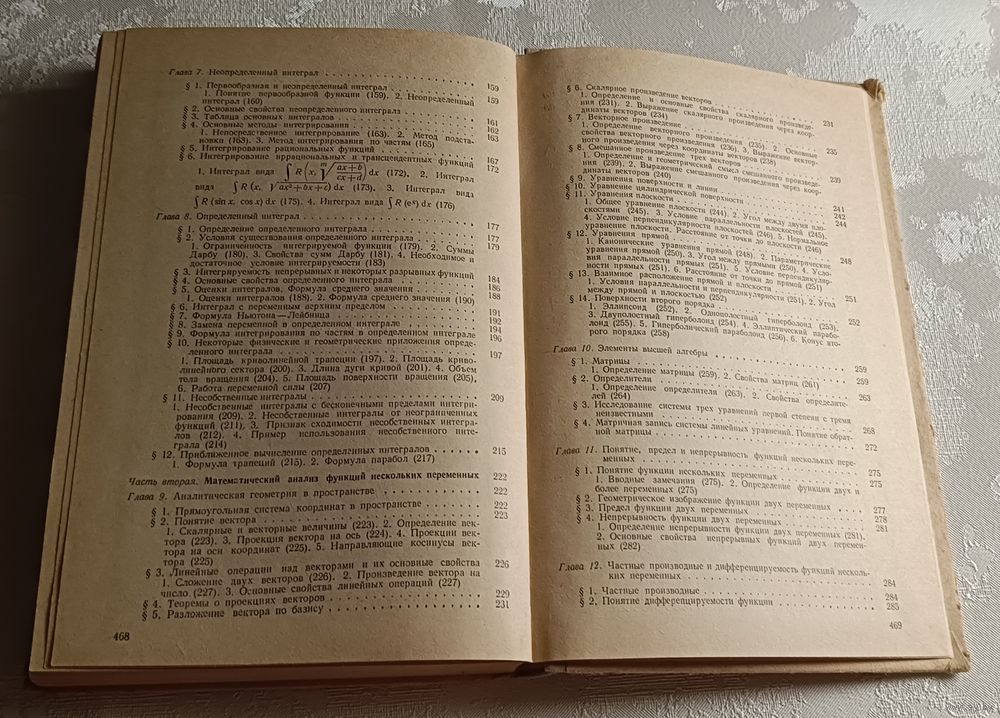 Глава 7. Неопределенный интеграл . . . 159
§ 1. Первообразная и неопределенный интеграл . . . 159
1. Понятие первообразной функции (159). 2. Неопределенный
интеграл (160)
§ 2. Основные свойства неопределенного интеграла . . . 161
§ 3. Таблица основных интегралов . . . 162
§ 4. Основные методы интегрирования . . . 163
1. Непосредственное интегрирование (163). 2. Метод подста-
новки (163). 3. Метод интегрирования по частям (165)
§ 5. Интегрирование рациональных функций . . . 167
§ 6. Интегрирование иррациональных и трансцендентных функций 172
1. Интеграл вида ∫ R (x, ᵐ√((ax+b)/(cx+d))) dx (172). 2. Интеграл
вида ∫ R (x, √(ax²+bx+c)) dx (173). 3. Интеграл вида
∫ R (sin x, cos x) dx (175). 4. Интеграл вида ∫ R (eˣ) dx (176)
Глава 8. Определенный интеграл . . . 177
§ 1. Определение определенного интеграла . . . 177
§ 2. Условия существования определенного интеграла . . . 179
1. Ограниченность интегрируемой функции (179). 2. Суммы
Дарбу (180). 3. Свойства сумм Дарбу (181). 4. Необходимое и
достаточное условие интегрируемости (183)
§ 3. Интегрируемость непрерывных и некоторых разрывных функций 184
§ 4. Основные свойства определенного интеграла . . . 186
§ 5. Оценки интегралов. Формула среднего значения . . . 188
1. Оценки интегралов (188). 2. Формула среднего значения (190)
§ 6. Интеграл с переменным верхним пределом . . . 191
§ 7. Формула Ньютона—Лейбница . . . 192
§ 8. Замена переменной в определенном интеграле . . . 194
§ 9. Формула интегрирования по частям в определенном интеграле 196
§ 10. Некоторые физические и геометрические приложения опреде-
ленного интеграла . . . 197
1. Площадь криволинейной трапеции (197). 2. Площадь криво-
линейного сектора (200). 3. Длина дуги кривой (201). 4. Объем
тела вращения (204). 5. Площадь поверхности вращения (205).
6. Работа переменной силы (207)
§ 11. Несобственные интегралы . . . 209
1. Несобственные интегралы с бесконечными пределами интегри-
рования (209). 2. Несобственные интегралы от неограниченных
функций (211). 3. Признак сходимости несобственных интегра-
лов (212). 4. Пример использования несобственного инте-
грала (214)
§ 12. Приближенное вычисление определенных интегралов . . . 215
1. Формула трапеций (215). 2. Формула парабол (217)
Часть вторая. Математический анализ функций нескольких переменных 222
Глава 9. Аналитическая геометрия в пространстве . . . 222
§ 1. Прямоугольная система координат в пространстве . . . 222
§ 2. Понятие вектора . . . 223
1. Скалярные и векторные величины (223). 2. Определение век-
тора (223). 3. Проекция вектора на ось (224). 4. Проекции век-
тора на оси координат (225). 5. Направляющие косинусы век-
тора (225)
§ 3. Линейные операции над векторами и их основные свойства 226
1. Сложение двух векторов (226). 2. Произведение вектора на
число (227). 3. Основные свойства линейных операций (227)
§ 4. Теоремы о проекциях векторов . . . 229
§ 5. Разложение вектора по базису . . . 231
468
§ 6. Скалярное произведение векторов . . . 231
1. Определение и основные свойства скалярного произведе-
ния (231). 2. Выражение скалярного произведения через коор-
динаты векторов (234)
§ 7. Векторное произведение . . . 235
1. Определение векторного произведения (235). 2. Основные
свойства векторного произведения (236). 3. Выражение вектор-
ного произведения через координаты векторов (238)
§ 8. Смешанное произведение трех векторов . . . 239
1. Определение и геометрический смысл смешанного произведе-
ния (239). 2. Выражение смешанного произведения через коор-
динаты векторов (240)
§ 9. Уравнения поверхности и линии . . . 241
§ 10. Уравнение цилиндрической поверхности . . . 242
§ 11. Уравнения плоскости . . . 244
1. Общее уравнение плоскости (244). 2. Угол между двумя пло-
скостями (245). 3. Условие параллельности плоскостей (245).
4. Условие перпендикулярности плоскостей (246). 5. Нормальное
уравнение плоскости. Расстояние от точки до плоскости (246)
§ 12. Уравнения прямой . . . 248
1. Канонические уравнения прямой (248). 2. Параметрические
уравнения прямой (250). 3. Угол между прямыми (250). 4. Усло-
вия параллельности прямых (251). 5. Условие перпендикуляр-
ности прямых (251). 6. Расстояние от точки до прямой (251)
§ 13. Взаимное расположение прямой и плоскости . . . 251
1. Условия параллельности и перпендикулярности (251). 2. Угол
между прямой и плоскостью (252)
§ 14. Поверхности второго порядка . . . 252
1. Эллипсоид (252). 2. Однополостный гиперболоид (253).
3. Двуполостный гиперболоид (254). 4. Эллиптический парабо-
лоид (255). 5. Гиперболический параболоид (256). 6. Конус вто-
рого порядка (258)
Глава 10. Элементы высшей алгебры . . . 259
§ 1. Матрицы . . . 259
1. Определение матрицы (259). 2. Свойства матриц (261)
§ 2. Определители . . . 263
1. Определение определителя (263). 2. Свойства определите-
лей (264)
§ 3. Исследование системы трех уравнений первой степени с тремя
неизвестными . . . 268
§ 4. Матричная запись системы линейных уравнений. Понятие обрат-
ной матрицы . . . 272
Глава 11. Понятие, предел и непрерывность функций нескольких пере-
менных . . . 275
§ 1. Понятие функции нескольких переменных . . . 275
1. Вводные замечания (275). 2. Определение функции двух и
более переменных (275)
§ 2. Геометрическое изображение функции двух переменных . . . 277
§ 3. Предел функции двух переменных . . . 278
§ 4. Непрерывность функции двух переменных . . . 281
1. Определение непрерывности функции двух переменных (281).
2. Основные свойства непрерывных функций двух перемен-
ных (282)
Глава 12. Частные производные и дифференцируемость функций несколь-
ких переменных . . . 284
§ 1. Частные производные . . . 284
§ 2. Понятие дифференцируемости функции . . . 285
469